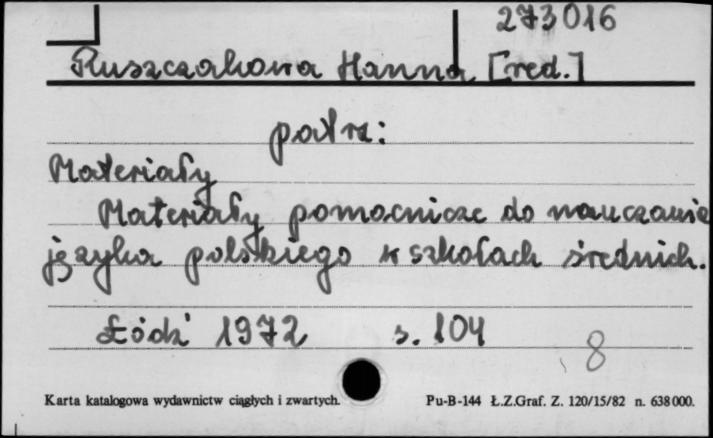 273016
Ruszczakowa Hanna [red.]
patrz:
Materiały
Materiały pomocnicze do nauczania
języka polskiego w szkołach średnich.
Łódź 1972 s. 104
8
Karta katalogowa wydawnictw ciągłych i zwartych. Pu-B-144 Ł.Z.Graf. Z. 120/15/82 n. 638000.